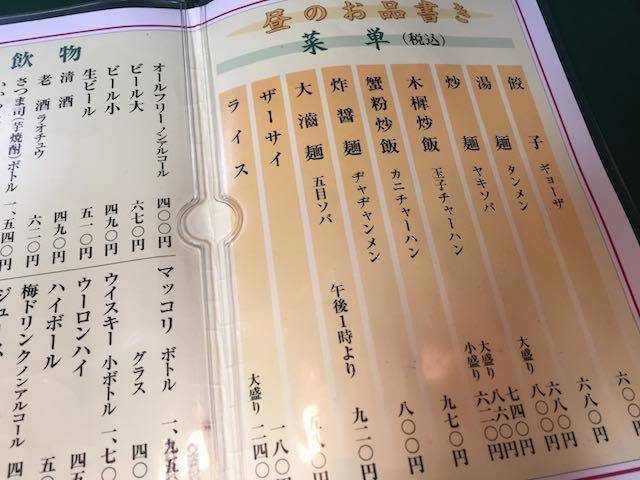 昼のお品書き
菜単(税込)
餃子 ギョーザ
湯麺 タンメン
炒麺 ヤキソバ
木樨炒飯 玉子チャーハン
蟹粉炒飯 カニチャーハン
炸醤麺 ヂャヂャンメン 午後1時より
大滷麺 五目ソバ
ザーサイ
ライス
六〇〇円
六八〇円
六八〇円
大盛り 八〇〇円
七四〇円
大盛り 八六〇円
小盛り 六二〇円
九七〇円
八〇〇円
九二〇円
八八〇円
一八〇円
大盛り 二四〇円
飲物
オールフリー ノンアルコール 四〇〇円
ビール大 六七〇円
ビール小 四九〇円
生ビール 五一〇円
清酒 四九〇円
老酒 ラオチュウ 六二〇円
さつま司(芋焼酎)ボトル 一、五四〇円
マッコリ ボトル 一、九五〇
グラス 四〇
ウイスキー 小ボトル 一、七〇
ウーロンハイ 四
ハイボール 五
梅ドリンク ノンアルコール 四
ジュース